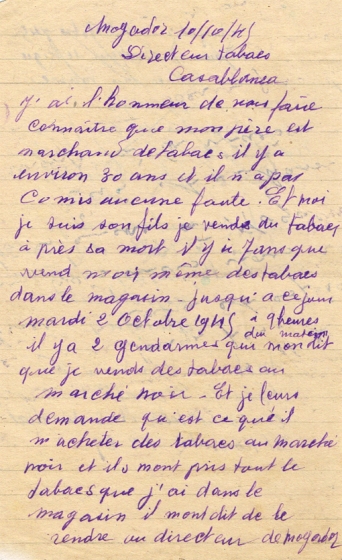 Mogador 10/10/45
Directeur tabacs
Casablanca
j'ai l'honneur de vous faire
connaitre que mon père est
marchand de tabacs il y a
environ 30 ans et il n'a pas
comis aucune faute. Et moi
je suis son fils je vends du tabacs
a près sa mort il y a 7 ans que
vend moi même des tabacs
dans le magasin - jusqu'a ce jour
mardi 2 Octobre 1945 à 9 heures
du matin
il ya 2 gendarmes qui mon dit
que je vends des tabacs au
marché noir - Et je leurs
demande qu'est ce qué il
m'acheter des tabacs au marché
noir et ils mont pris tout le
tabacs que j'ai dans le
magasin il mont dit de le
rendre au directeur de mogador